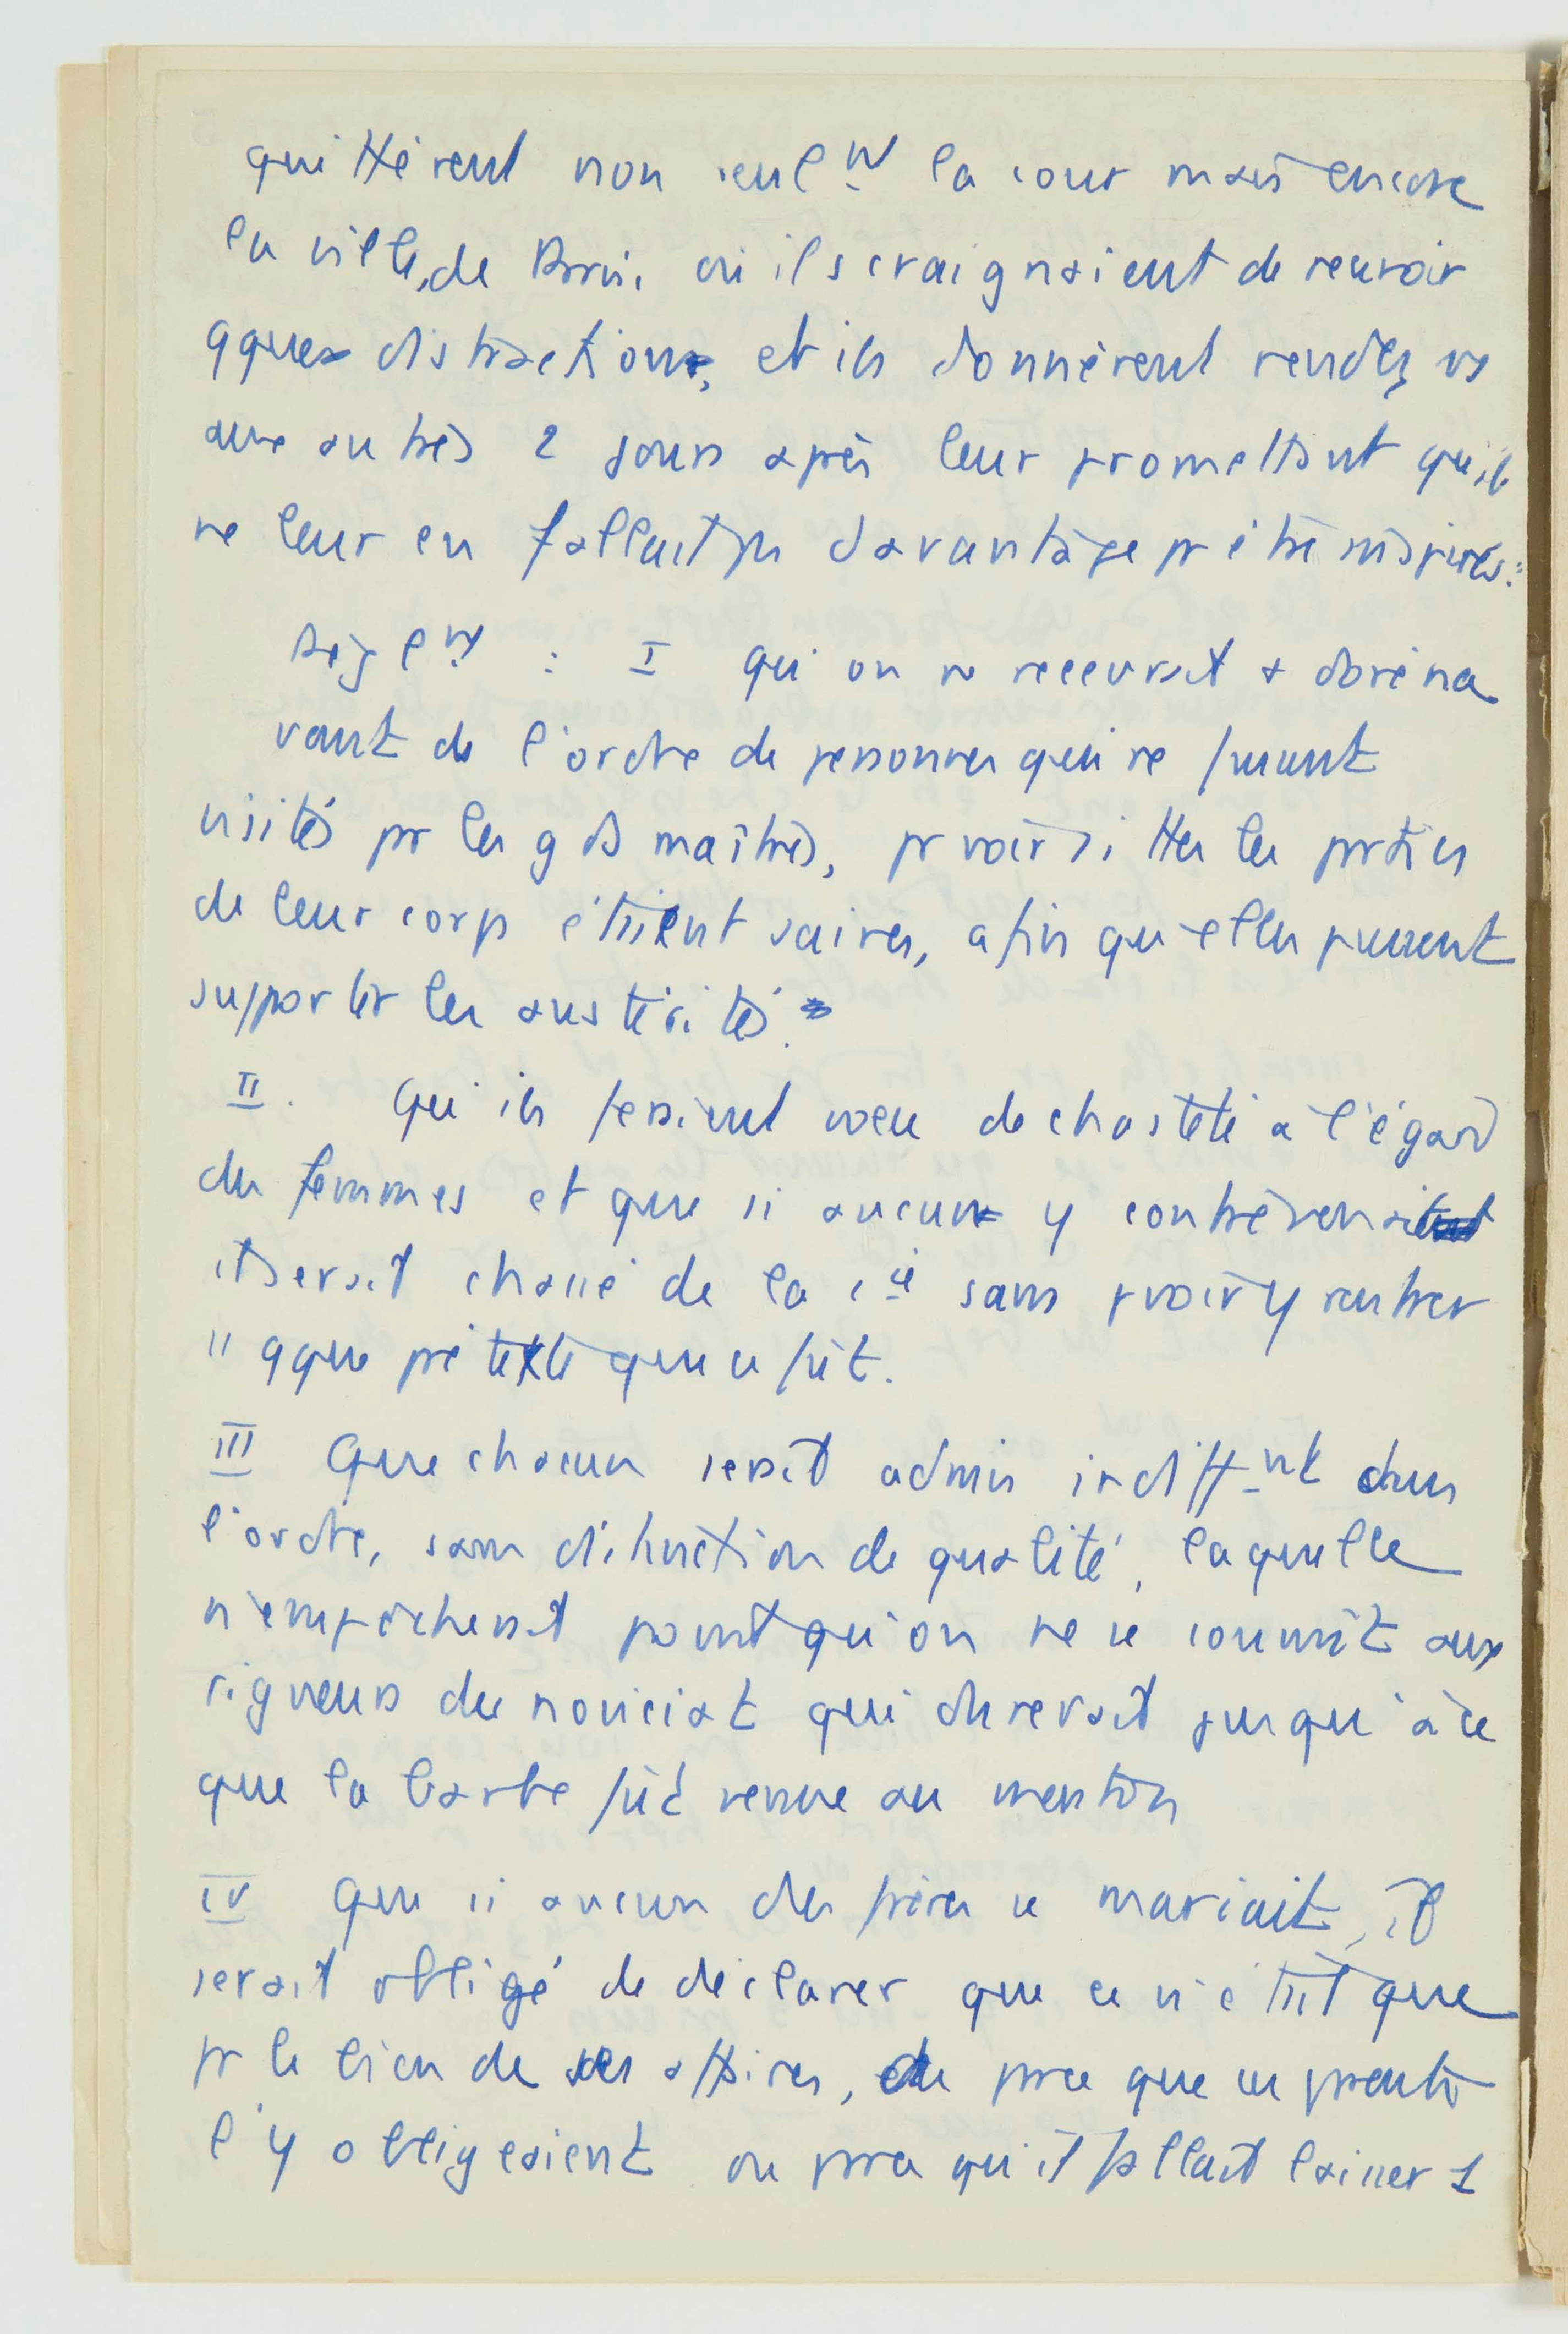 quittèrent non seulᵗ la cour mais encore
la ville, de Paris, où ils craignaient de recevoir
qques distractions, et ils donnèrent rendez vs
aux autres 2 jours après leur promettant qu'il
ne leur en fallait pas davantage pr être inspirés :
Règlᵗ : I qu'on ne recevrait + doréna
vant de l'ordre de personnes qui ne fussent
visités par les gds maîtres, pr voir si ttes les parties
de leur corps étaient saines, afin qu'elles pussent
supporter les austérités.
II. Qu'ils feraient voeu de chasteté à l'égard
des femmes et que si aucun y contrevenait
il serait chassé de la cⁱᵉ sans pvoir y rentrer
ss qque prétexte que ce fût.
III Que chacun serait admis indiffᵗ dans
l'ordre, sans distinction de qualité, laquelle
n'empêcherait point qu'on ne se soumît aux
rigueurs du noviciat qui durerait jusqu'à ce
que la barbe fût venue au menton
IV Que si aucun des frères se mariait, il
serait obligé de déclarer que ce n'était que
pr le bien de ses affaires, ou pce que ses parents
l'y obligeaient ou pce qu'il fallait laisser 1